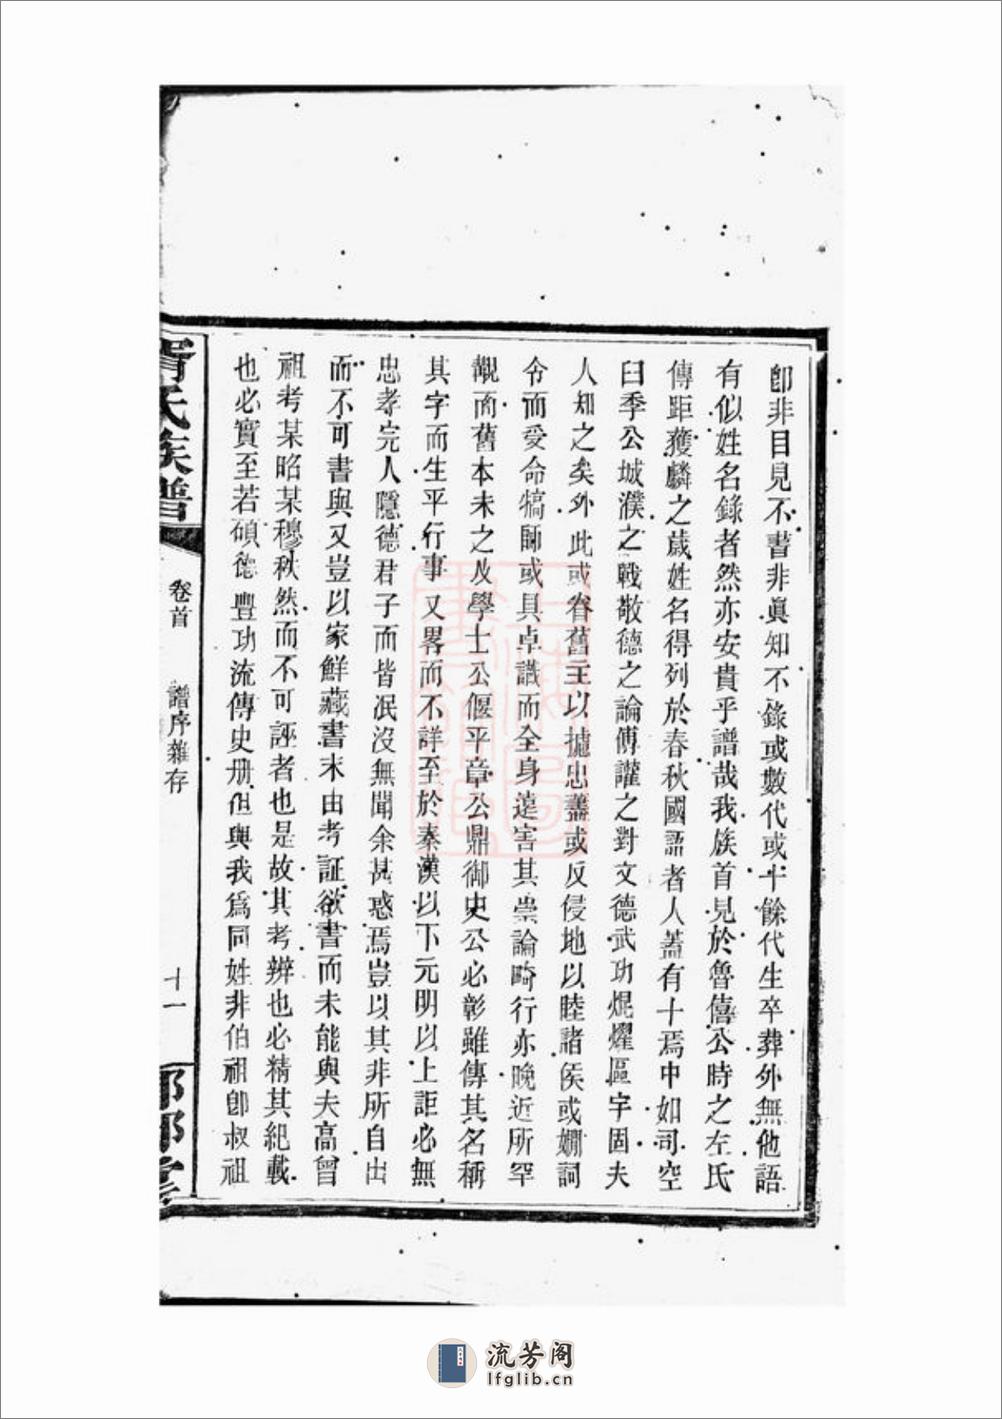 卽非目見不書非眞知不錄或數代或十餘代生卒葬外無他語
有似姓名錄者然亦安貴乎譜哉我族首見於魯僖公時之左氏
傳距獲麟之歲姓名得列於春秋國語者人蓋有十焉中如司空
臼季公城濮之戰敬德之論傅讙之對文德武功焜燿區宇固夫
人知之矣外此或眷舊主以攄忠藎或反侵地以睦諸侯或嫺詞
令而受命犒師或具卓識而全身遠害其崇論畸行亦晚近所罕
覯而舊本未之及學士公偃平章公鼎御史公必彰雖傳其名稱
其字而生平行事又畧而不詳至於秦漢以下元明以上詎必無
忠孝完人隱德君子而皆泯沒無聞余甚惑焉豈以其非所自出
而不可書與又豈以家鮮藏書末由考証欲書而未能與夫高曾
祖考某昭某穆秩然而不可誣者也是故其考辨也必精其紀載
也必實至若碩德豐功流傳史册但與我爲同姓非伯祖卽叔祖
胥氏族譜
卷首
譜序雜存
十一
流芳阁
lfglib.cn